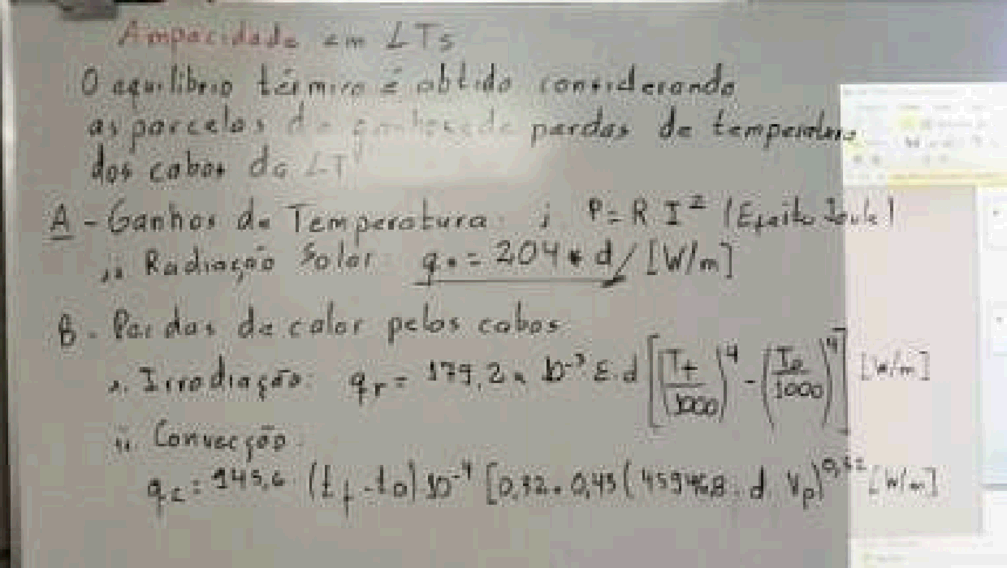 Ampacidade em LTs
O equilíbrio térmico é obtido considerando
as parcelas de ganhos e de perdas de temperatura
dos cabos da LT
A - Ganhos de Temperatura: i P = R I² (Efeito Joule)
ii Radiação Solar: q = 204 * d / [W/m]
B - Perdas de calor pelos cabos
i. Irradiação: qr = 179,2 x 10⁻³ ε. d [(Tf/1000)⁴ - (Ta/1000)⁴] [W/m]
ii. Convecção
qc = 945,6 (tf - ta) 10⁻⁴ [0,32 + 0,43 (45946,8 . d. Vp)^0,52 [W/m]